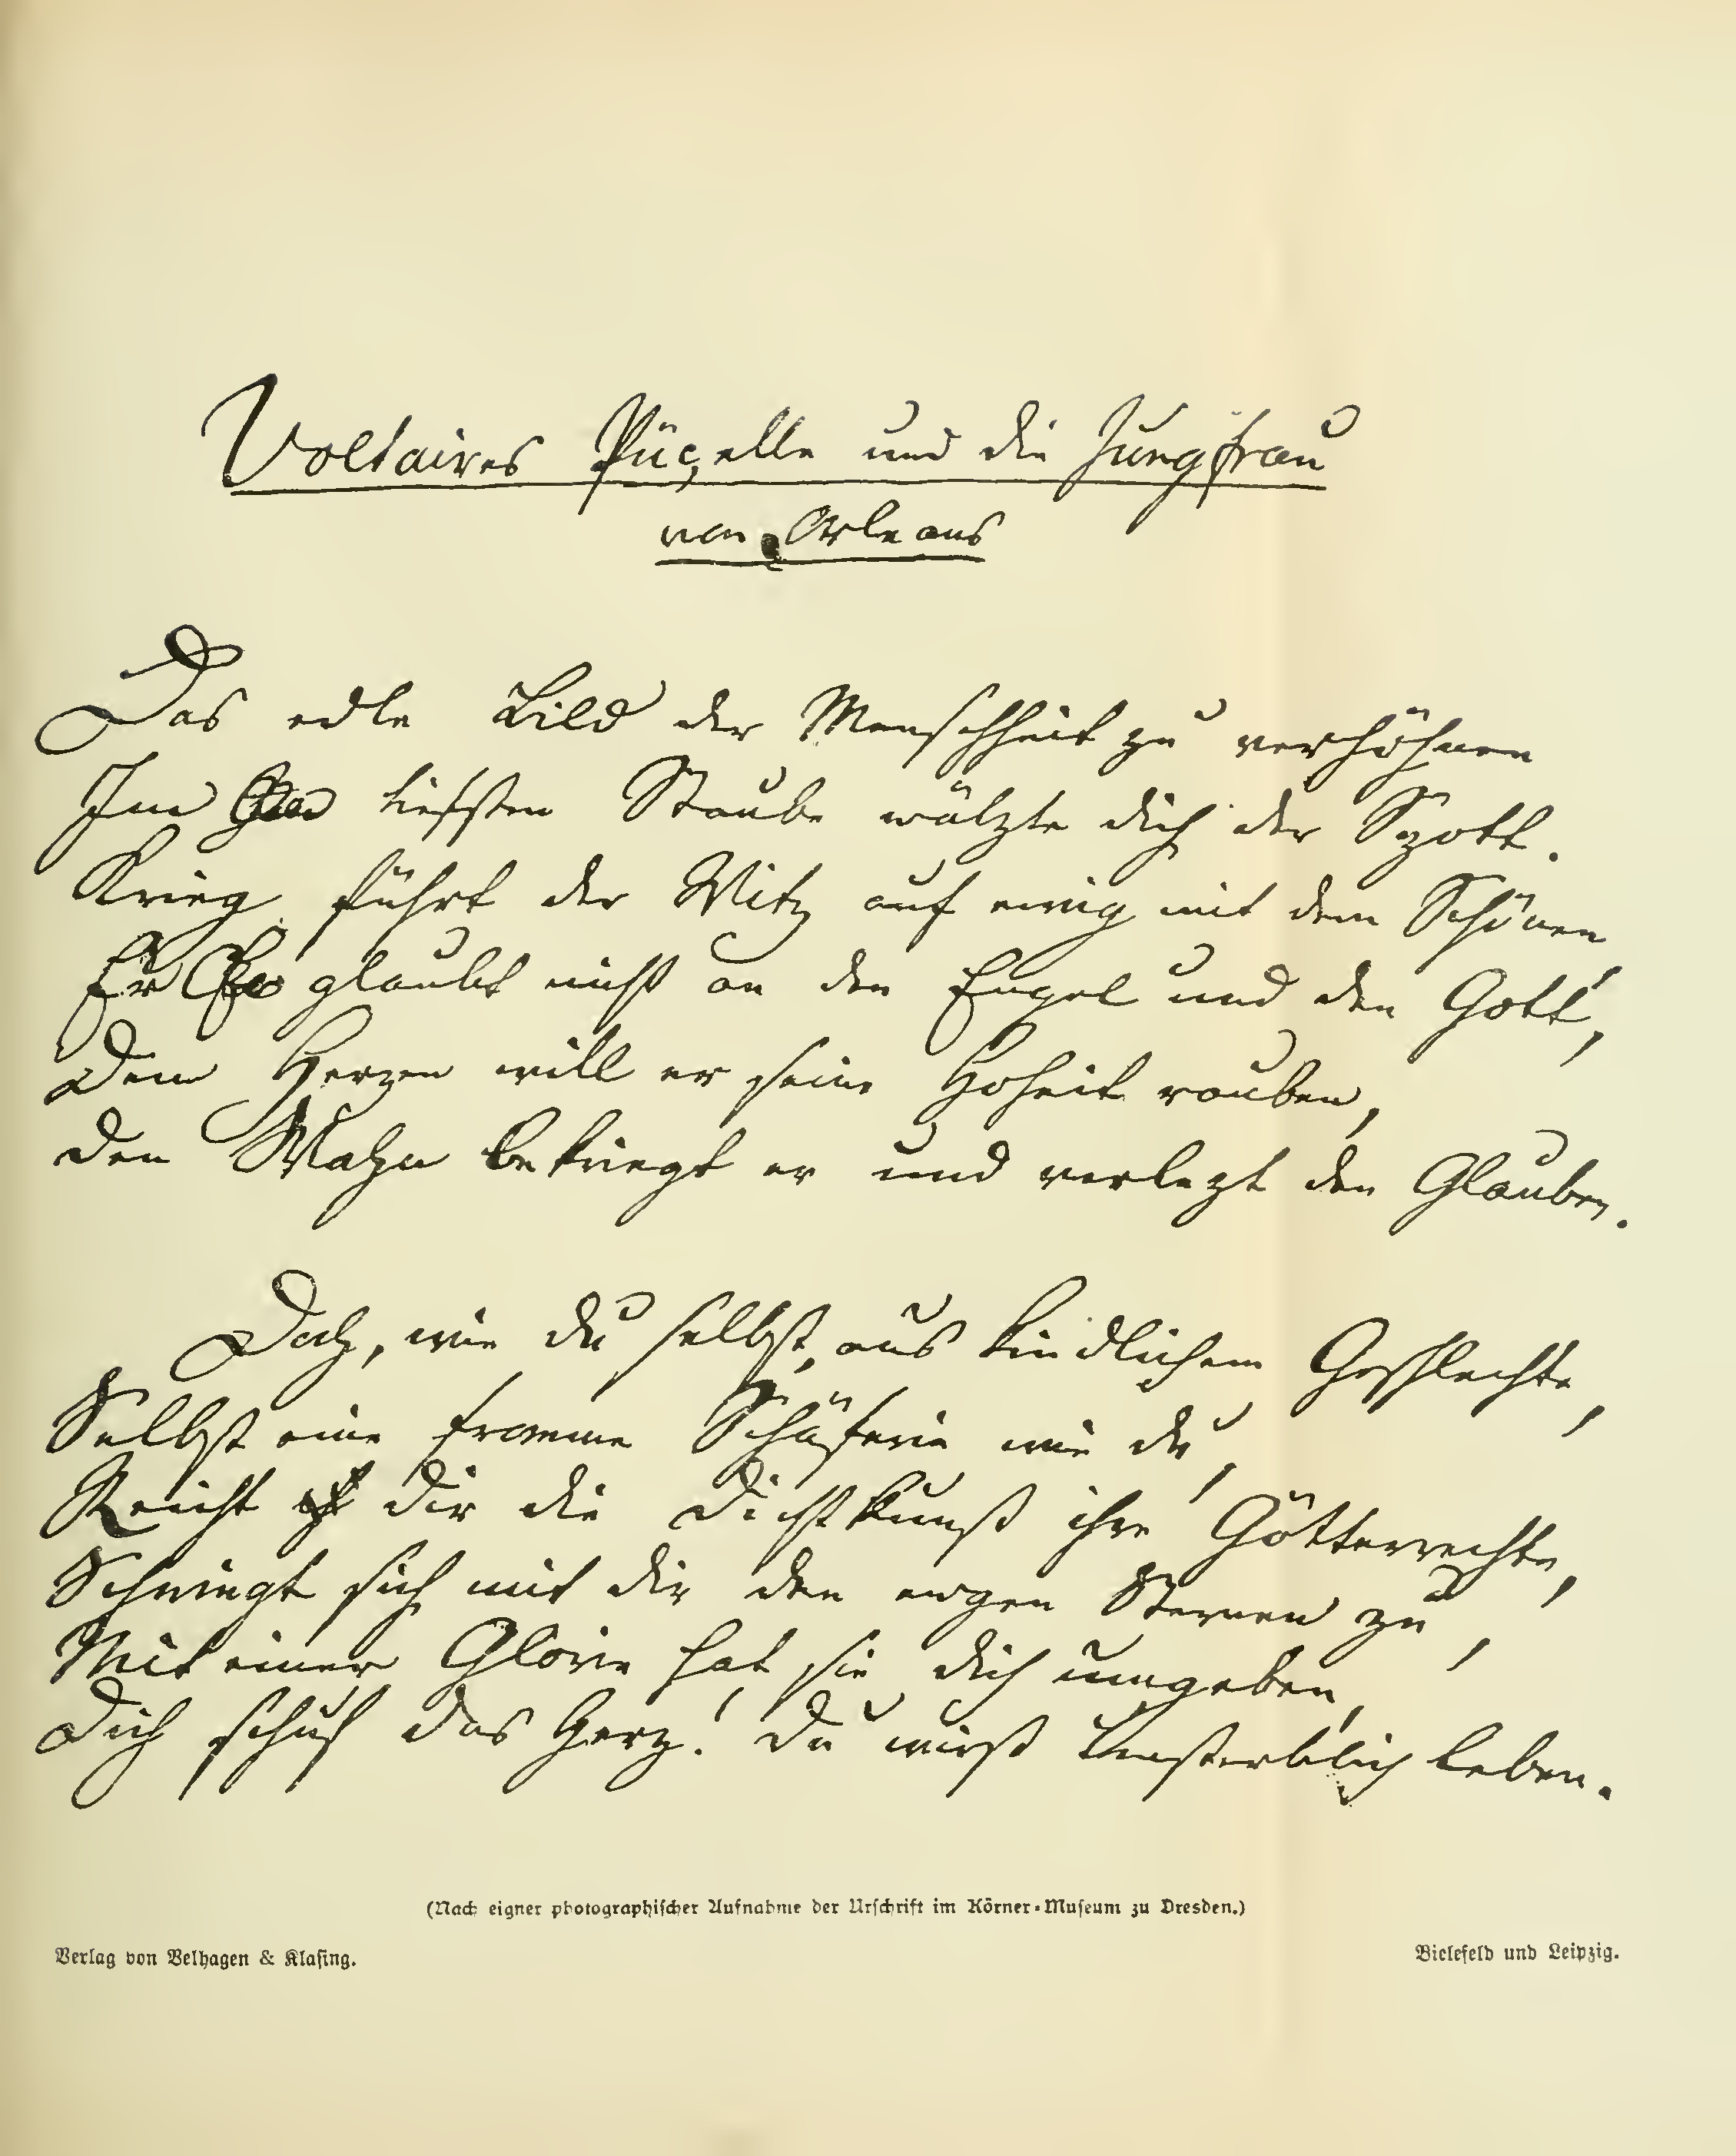 Voltaires Püçelle und die Jungfrau
von Orleans
Das edle Bild der Menschheit zu verhöhnen
Im tiefsten Staube wälzte dich der Spott.
Krieg führt der Witz auf ewig mit dem Schönen,
Er glaubt nicht an den Engel und den Gott,
Dem Herzen will er seine Hoheit rauben,
Den Wahn bekriegt er und verlezt den Glauben.
Doch, wie du selbst, aus kindlichem Geschlechte,
Selbst eine fromme Schäferin wie du,
Reicht dir die Dichtkunst ihre Götterrechte,
Schwingt sich mit dir den ewgen Sternen zu,
Mit einer Glorie hat sie dich umgeben,
Dich schuf das Herz! Du wirst unsterblich leben.
(Nach eigner photographischer Aufnahme der Urschrift im Körner-Museum zu Dresden.)
Verlag von Velhagen & Klasing. Bielefeld und Leipzig.